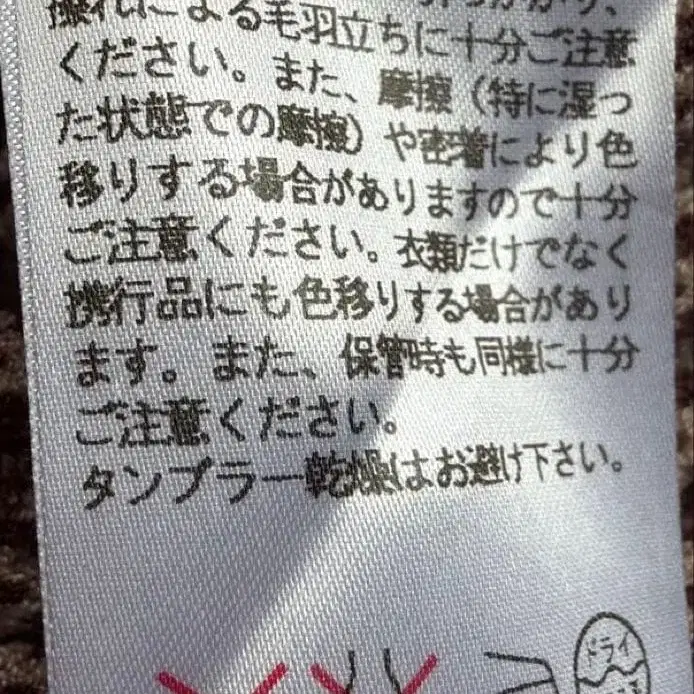 擦れによる毛羽立ちに十分ご注意
ください。また、摩擦（特に湿っ
た状態での摩擦）や密着により色
移りする場合がありますので十分
ご注意ください。衣類だけでなく
携行品にも色移りする場合があり
ます。また、保管時も同様に十分
ご注意ください。
タンブラー乾燥はお避け下さい。
ドライ